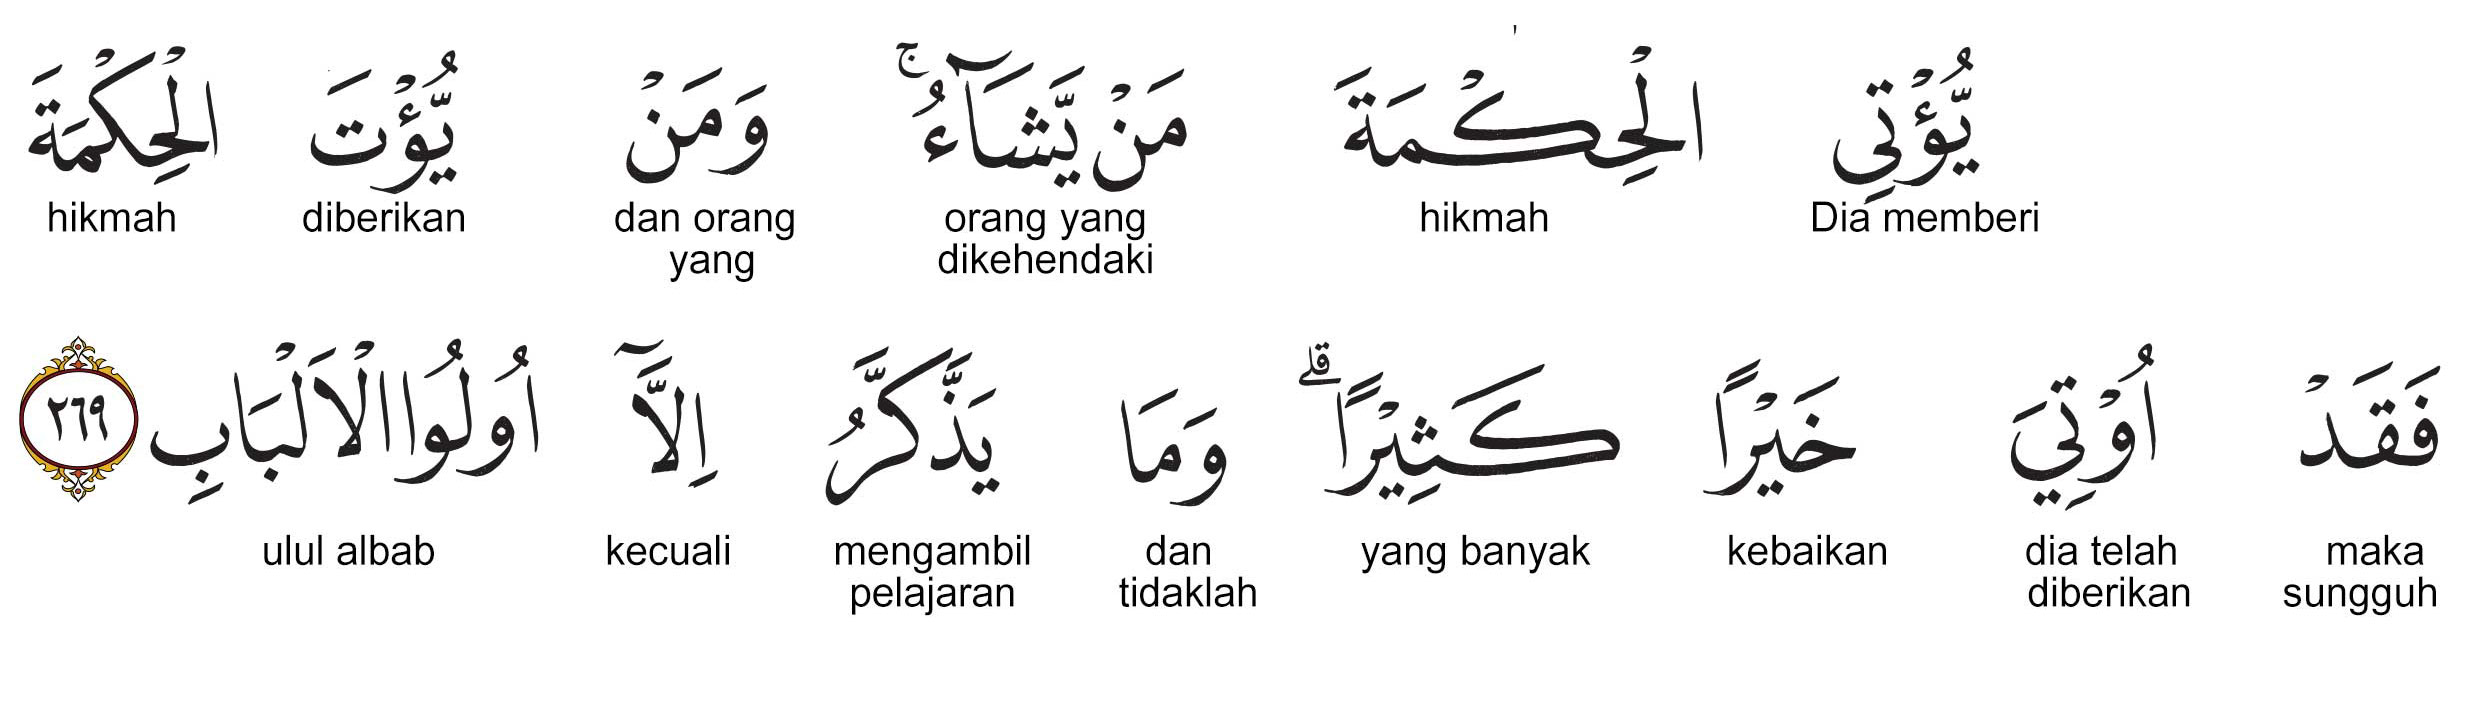 يُّؤْتِى الْحِكْمَةَ مَنْ يَّشَآءُ ۚ وَمَنْ يُّؤْتَ الْحِكْمَةَ
Dia memberi hikmah orang yang dikehendaki dan orang yang diberikan hikmah
فَقَدْ اُوْتِيَ خَيْرًا كَثِيْرًا ۗ وَمَا يَذَّكَّرُ اِلَّآ اُولُوا الْاَلْبَابِ ٢٦٩
maka sungguh dia telah diberikan kebaikan yang banyak dan tidaklah mengambil pelajaran kecuali ulul albab